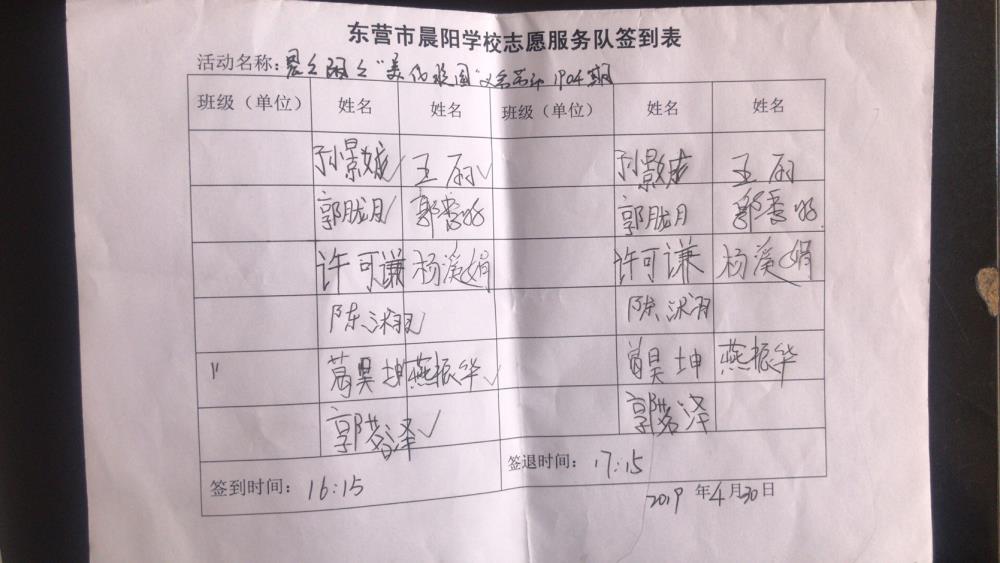 东营市晨阳学校志愿服务队签到表
活动名称：晨之阳之"美化校园" 1904期
班级（单位） 姓名 姓名 班级（单位） 姓名 姓名
孙景 ✓ 王 ✓ 孙景 王
郭胧月✓ 郭香 郭胧月 郭香
许可谦 杨溪娟 许可谦 杨溪娟
陈沭羽✓ 陈沭羽
〃 葛昊坤 燕振华✓ 昊坤 燕振华
郭茗泽✓ 郭茗泽
签到时间：16:15 签退时间：17:15
2019 年 4 月 30 日